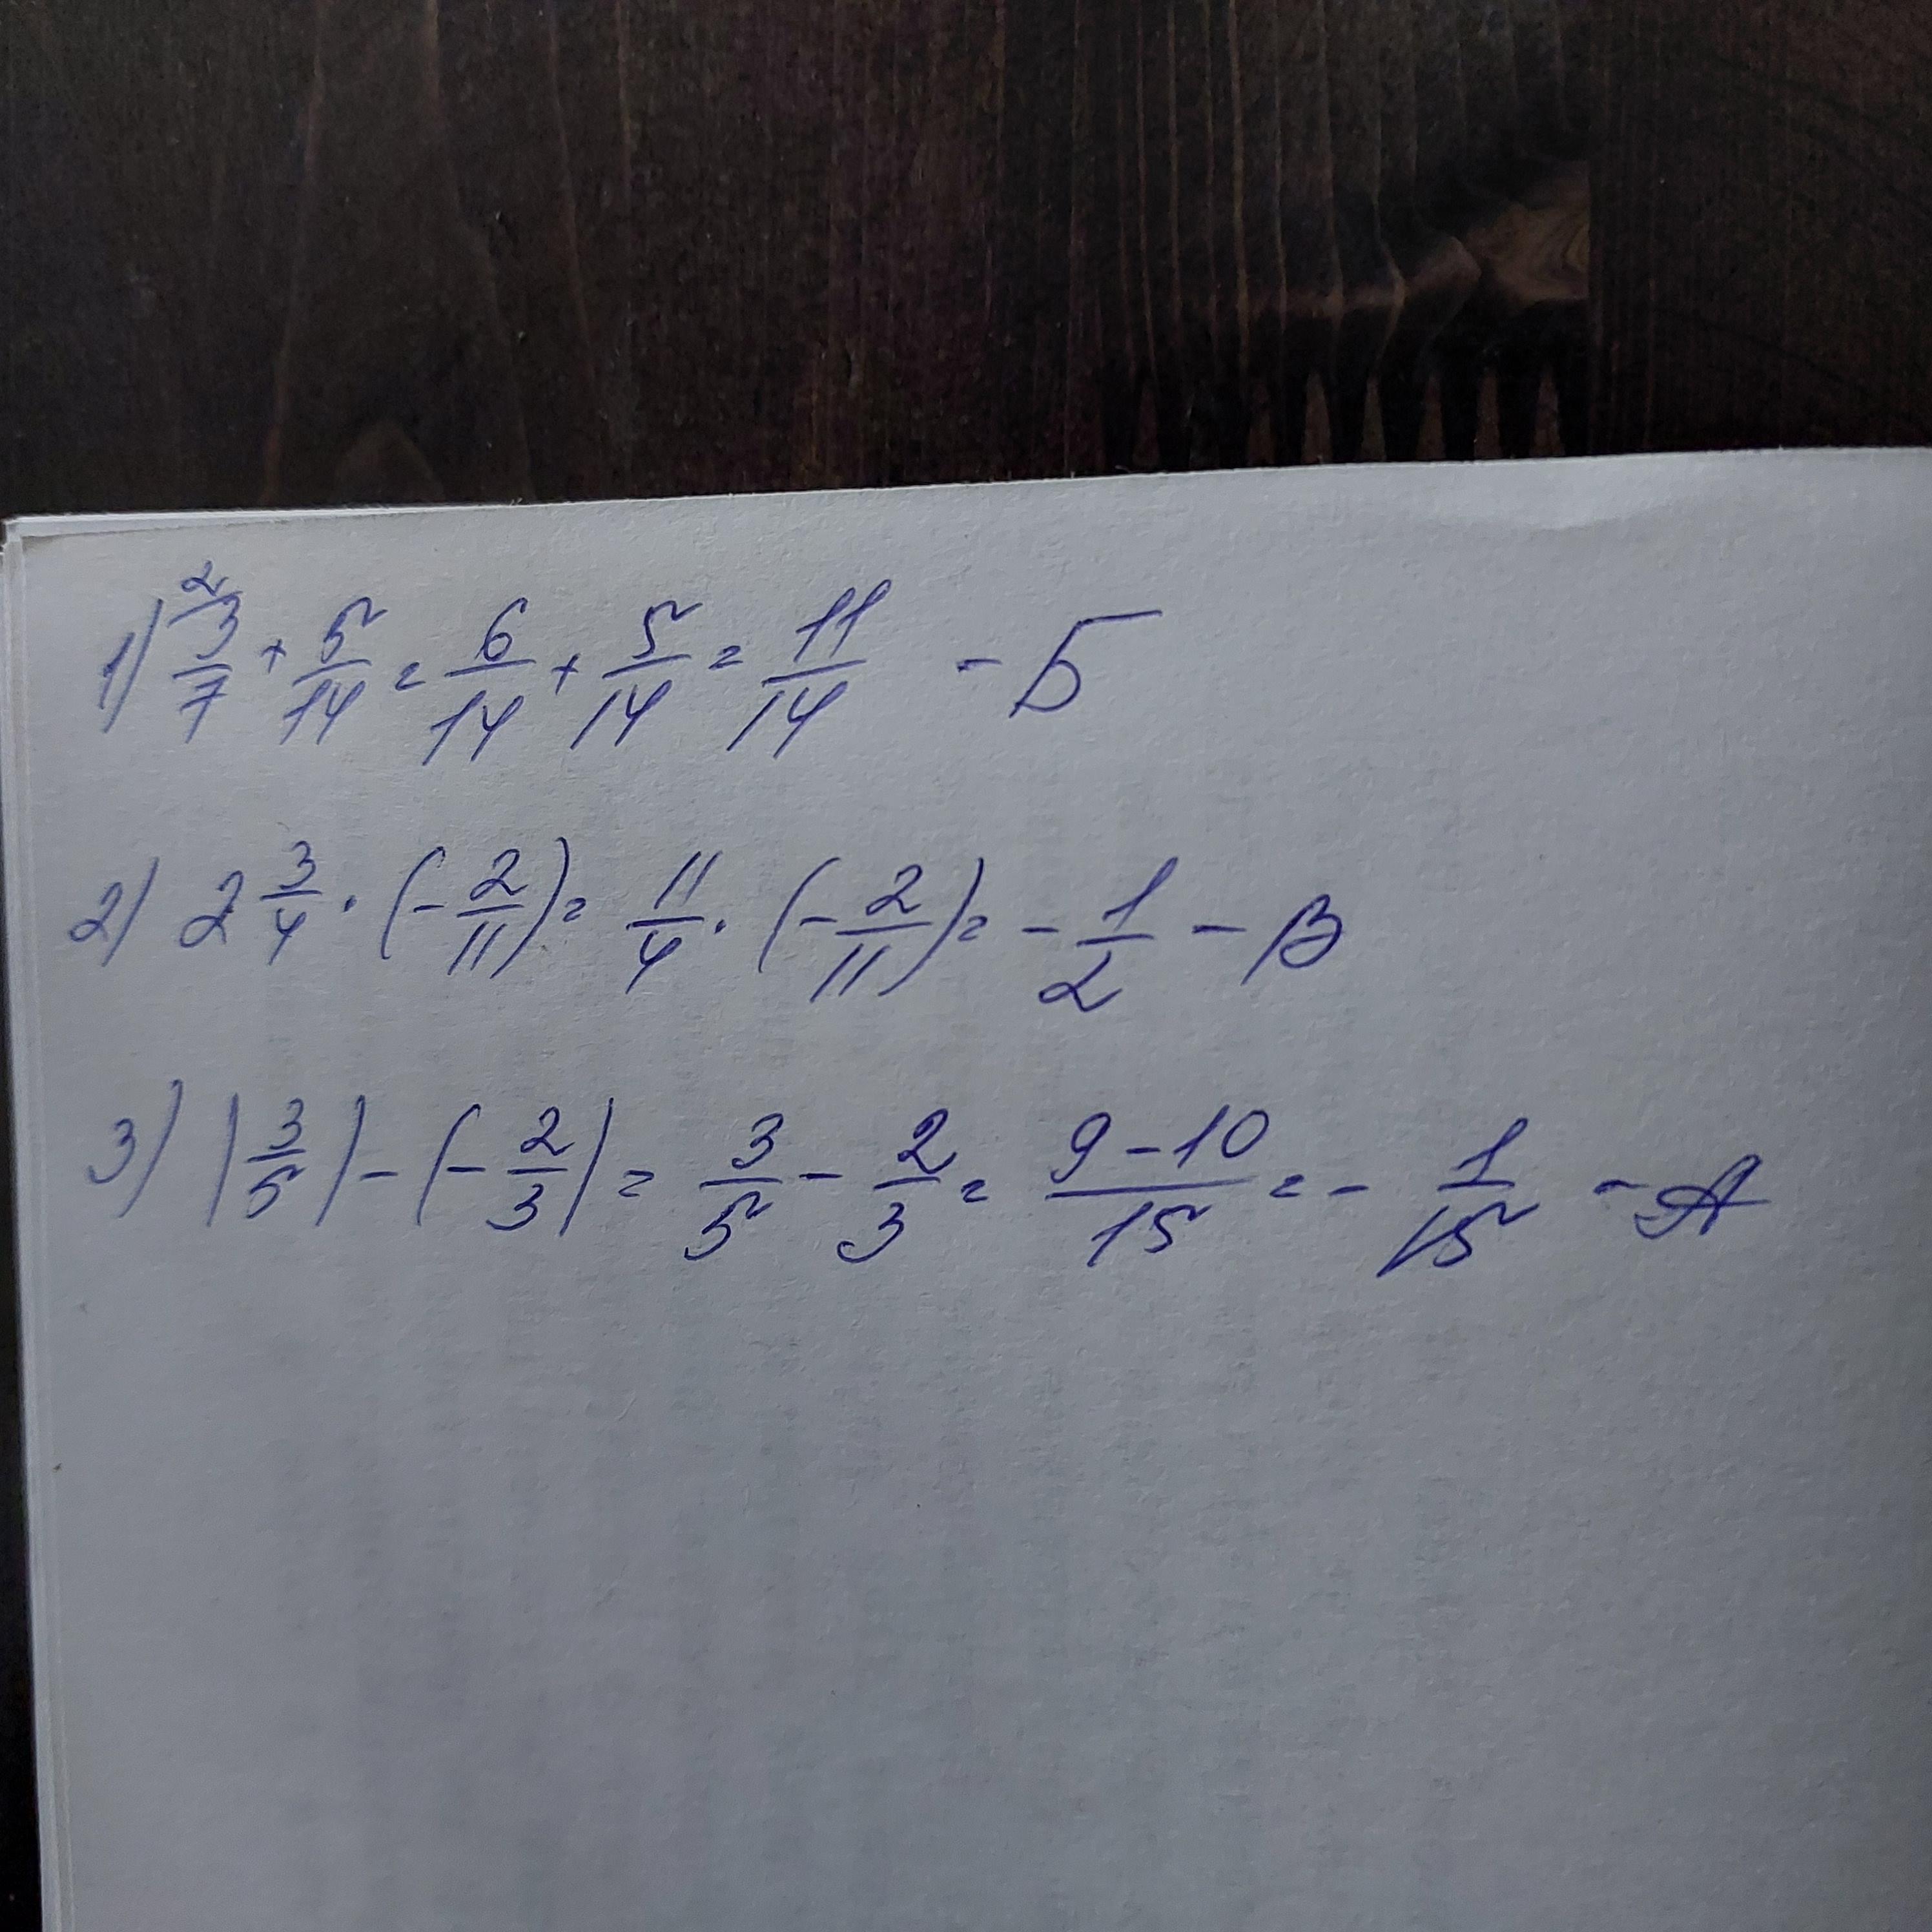 1) 2/ 3/7 + 5/14 = 6/14 + 5/14 = 11/14 - Б
2) 2 3/4 · (- 2/11) = 11/4 · (- 2/11) = - 1/2 - В
3) |3/5| - |- 2/3| = 3/5 - 2/3 = 9-10/15 = - 1/15 - А